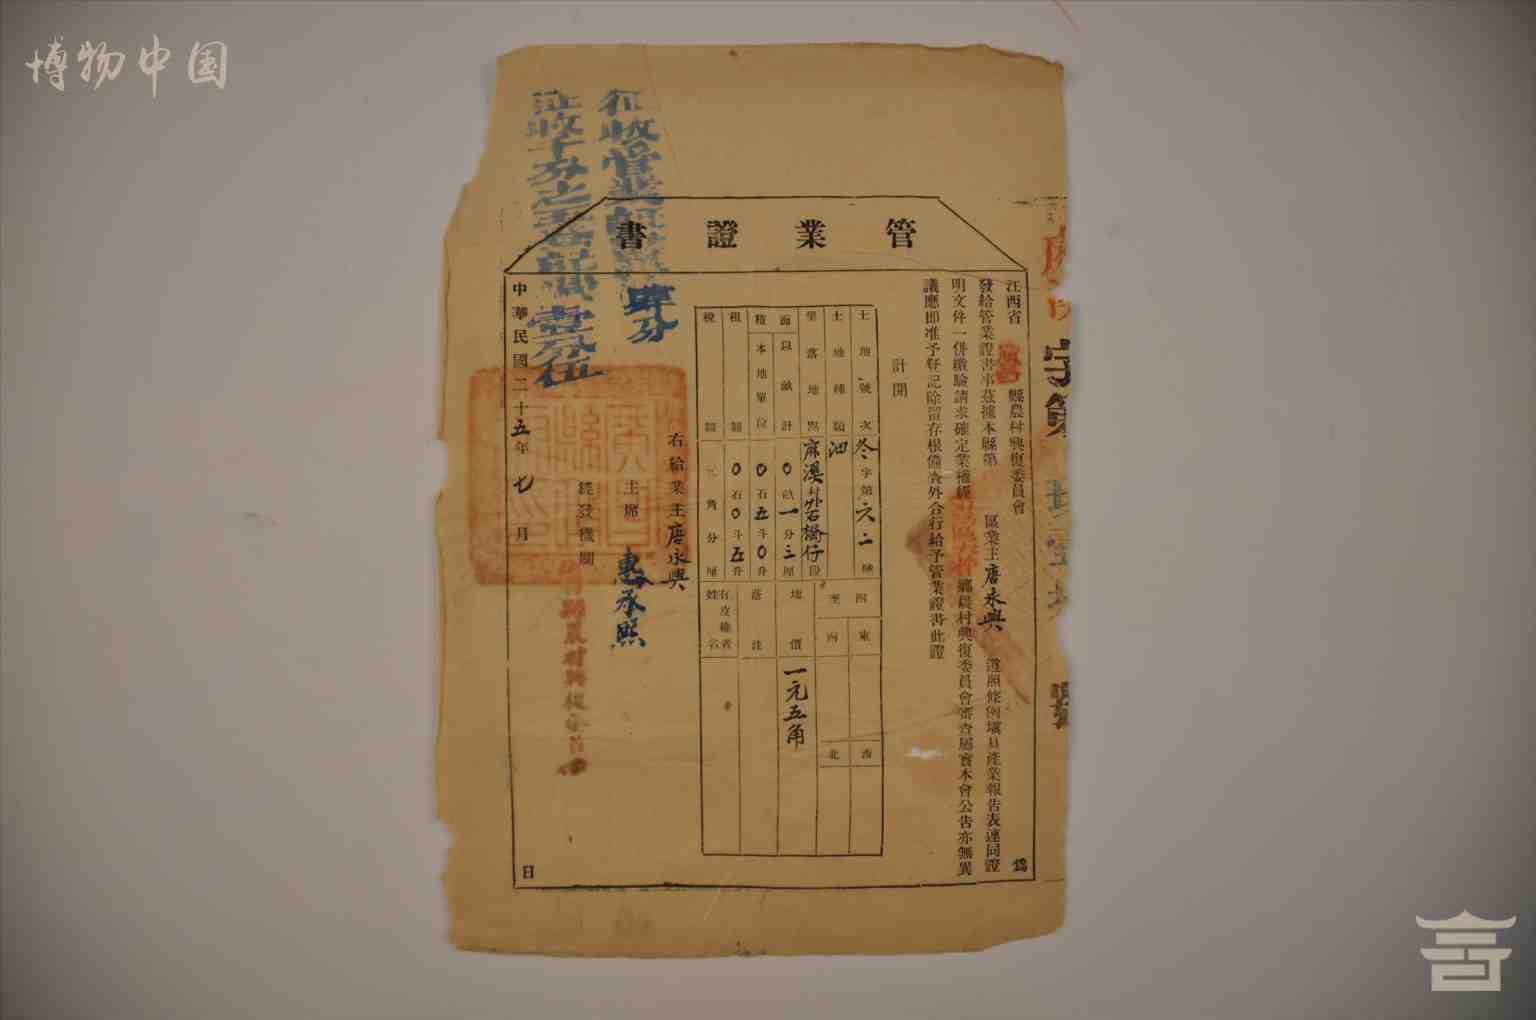 博物中国
管業證書
江西省 廣昌 縣農村興復委員會 為
發給管業證書事茲據本縣第 區業主唐永興 遵照條例填具產業報告表連同證
明文件一併繳驗請求確定業權經 鄉農村興復委員會審查屬實本會公告亦無異
議應即准予登記除留存根備查外合行給予管業證書此證
計開
土地號次 冬字第六二號
土地種類 田
坐落地點 麻溪村外石橋仔段
面積 以畝計 0畝一分三厘
本地單位 0石五斗0升
租額 0石0斗五升
稅額 元角分厘
四至 東 西 南 北
地價 一元五角
備註
有皮權者姓名
右給業主唐永興
主席 惠承照
經發機關
縣農村興復委員會
中華民國二十五年七月 日
征收管業證書費肆分
征收千分之 壹分伍
字第 號